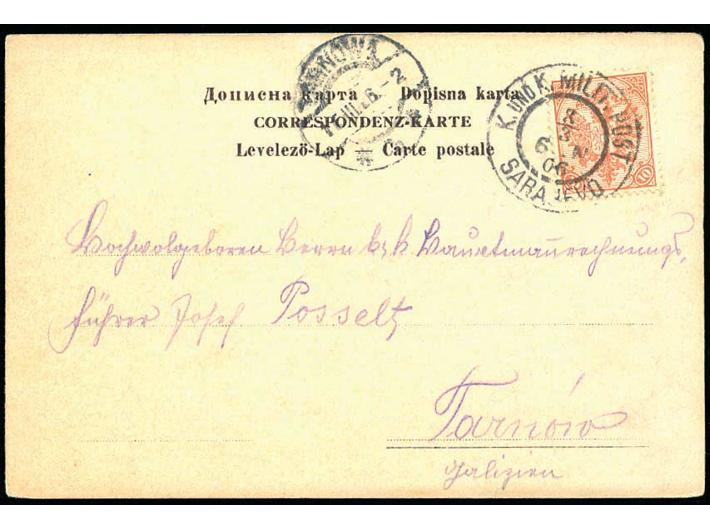 Дописна карта Dopisna karta
CORRESPONDENZ-KARTE
Levelező-Lap Carte postale
K. UND K. MILIT. POST
SARAJEVO
10
Hochwolgeboren Herrn k. k. Hauptmannrechnungs,
führer Josef Posselt,
Tarnów
Galizien